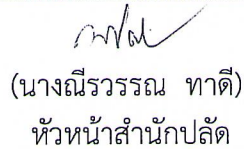 (นางณีรวรรณ ทาดี)
หัวหน้าสำนักปลัด